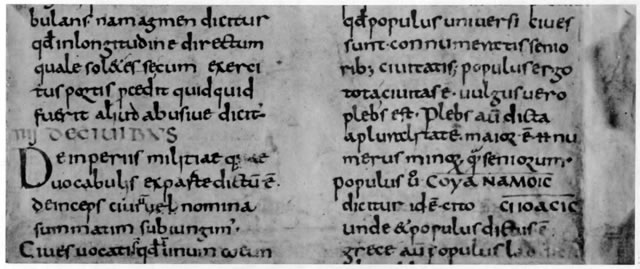 bulans· nam agmen dicitur
qđ in longitudine directum
quale sol& ees secum exerci
tus portis p̄cedit quidquid
fuerit aliud abusive dicit·
IIIJ DE CIUIBUS
De imperiis militiae q· ae
uocabulis ex parte dictū ē·
deinceps ciuiū uel nomina
summatim subiungim·
Ciues uocati qđ in unum coeun
qđ populus universi ciues
sunt· connumeratis senio
rib; ciuitatis; populus ergo
tota ciuitas ē· uulgus uero
plebs est· Plebs aū dicta
a pluralitate· maior ē n̄ nu
merus minor q̄ seniorum·
populus u̅ COYA NAMOIC
dicitur id ē cito CITOACIC
unde & populus dictus ē
grece aū populus